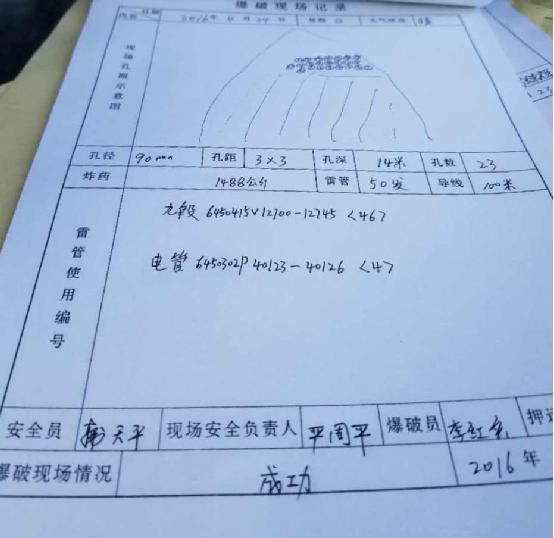 爆破现场记录
日期
内容
2016年4月24日 星期 日 天气状况 晴
现场孔眼示意图
孔径 90mm 孔距 3×3 孔深 14米 孔数 23
炸药 1488公斤 雷管 50发 导线 100米
雷管使用编号
6450415V12700-12745 <46>
电管 6450302P 40123-40126 <4>
安全员 天平 现场安全负责人 平周平 爆破员 李红 押运
爆破现场情况 成功 2016年